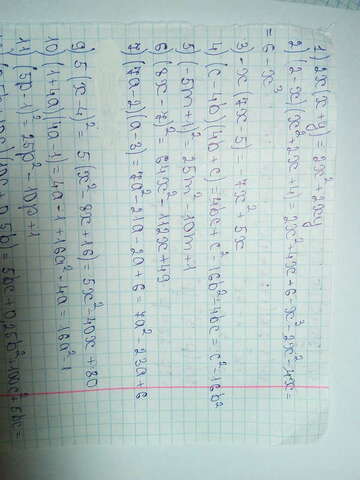 1) 2x(x+y)=2x²+2xy
2 (2-x)(x²+2x+4)=2x²+4x+6-x³-2x²-4x=
=6-x³
3 -x(7x-5)=-7x²+5x
4 (c-4b)(4b+c)=4bc+c²-16b²-4bc=c²-16b²
5 (-5m+1)²=25m²-10m+1
6 (8x-7)²=64x²-112x+49
7) (7a-2)(a-3)=7a²-21a-2a+6=7a²-23a+6
9) 5(x-4)²=5(x²-8x+16)=5x²-40x+80
10 (1+4a)(4a-1)=4a-1+16a²-4a=16a²-1
11) (5p-1)²=25p²-10p+1